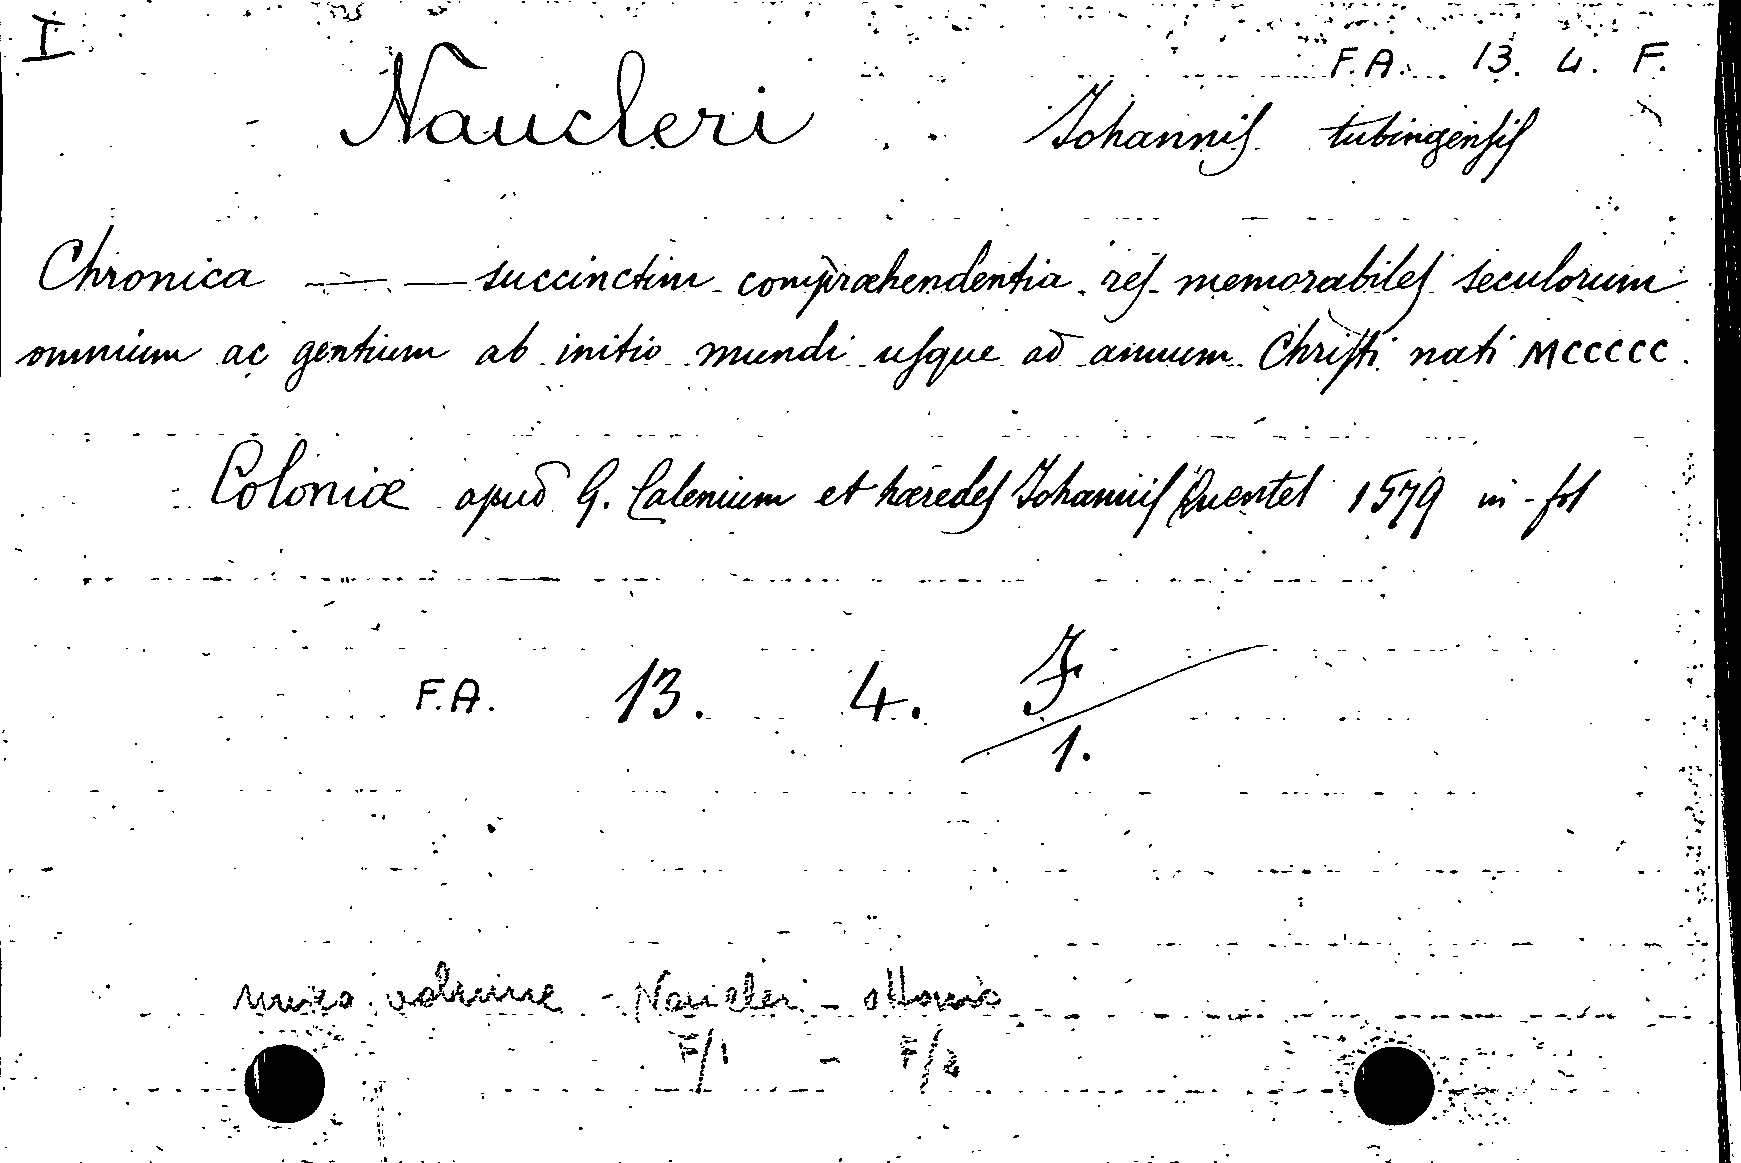 I
F.A. 13. 4. F.
Naucleri Johannis tubingensis
Chronica — — succinctim compræhendentia res memorabiles seculorum
omnium ac gentium ab initio mundi usque ad annum Christi nati MCCCCC.
Coloniæ apud G. Calenium et hæredes Johannis Quentel 1579 in-fol
F.A. 13. 4. F/1.
unico volume - Naucleri -
F/1 - F/2